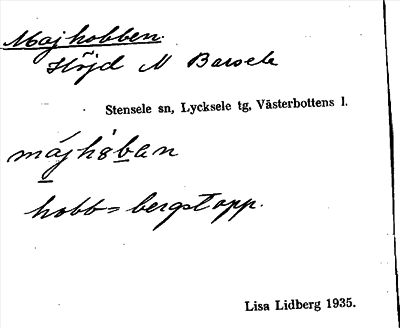 Majhobben.
Höjd N Barsele
Stensele sn, Lycksele tg, Västerbottens l.
májhò̀ban
hobb = bergstopp.
Lisa Lidberg 1935.